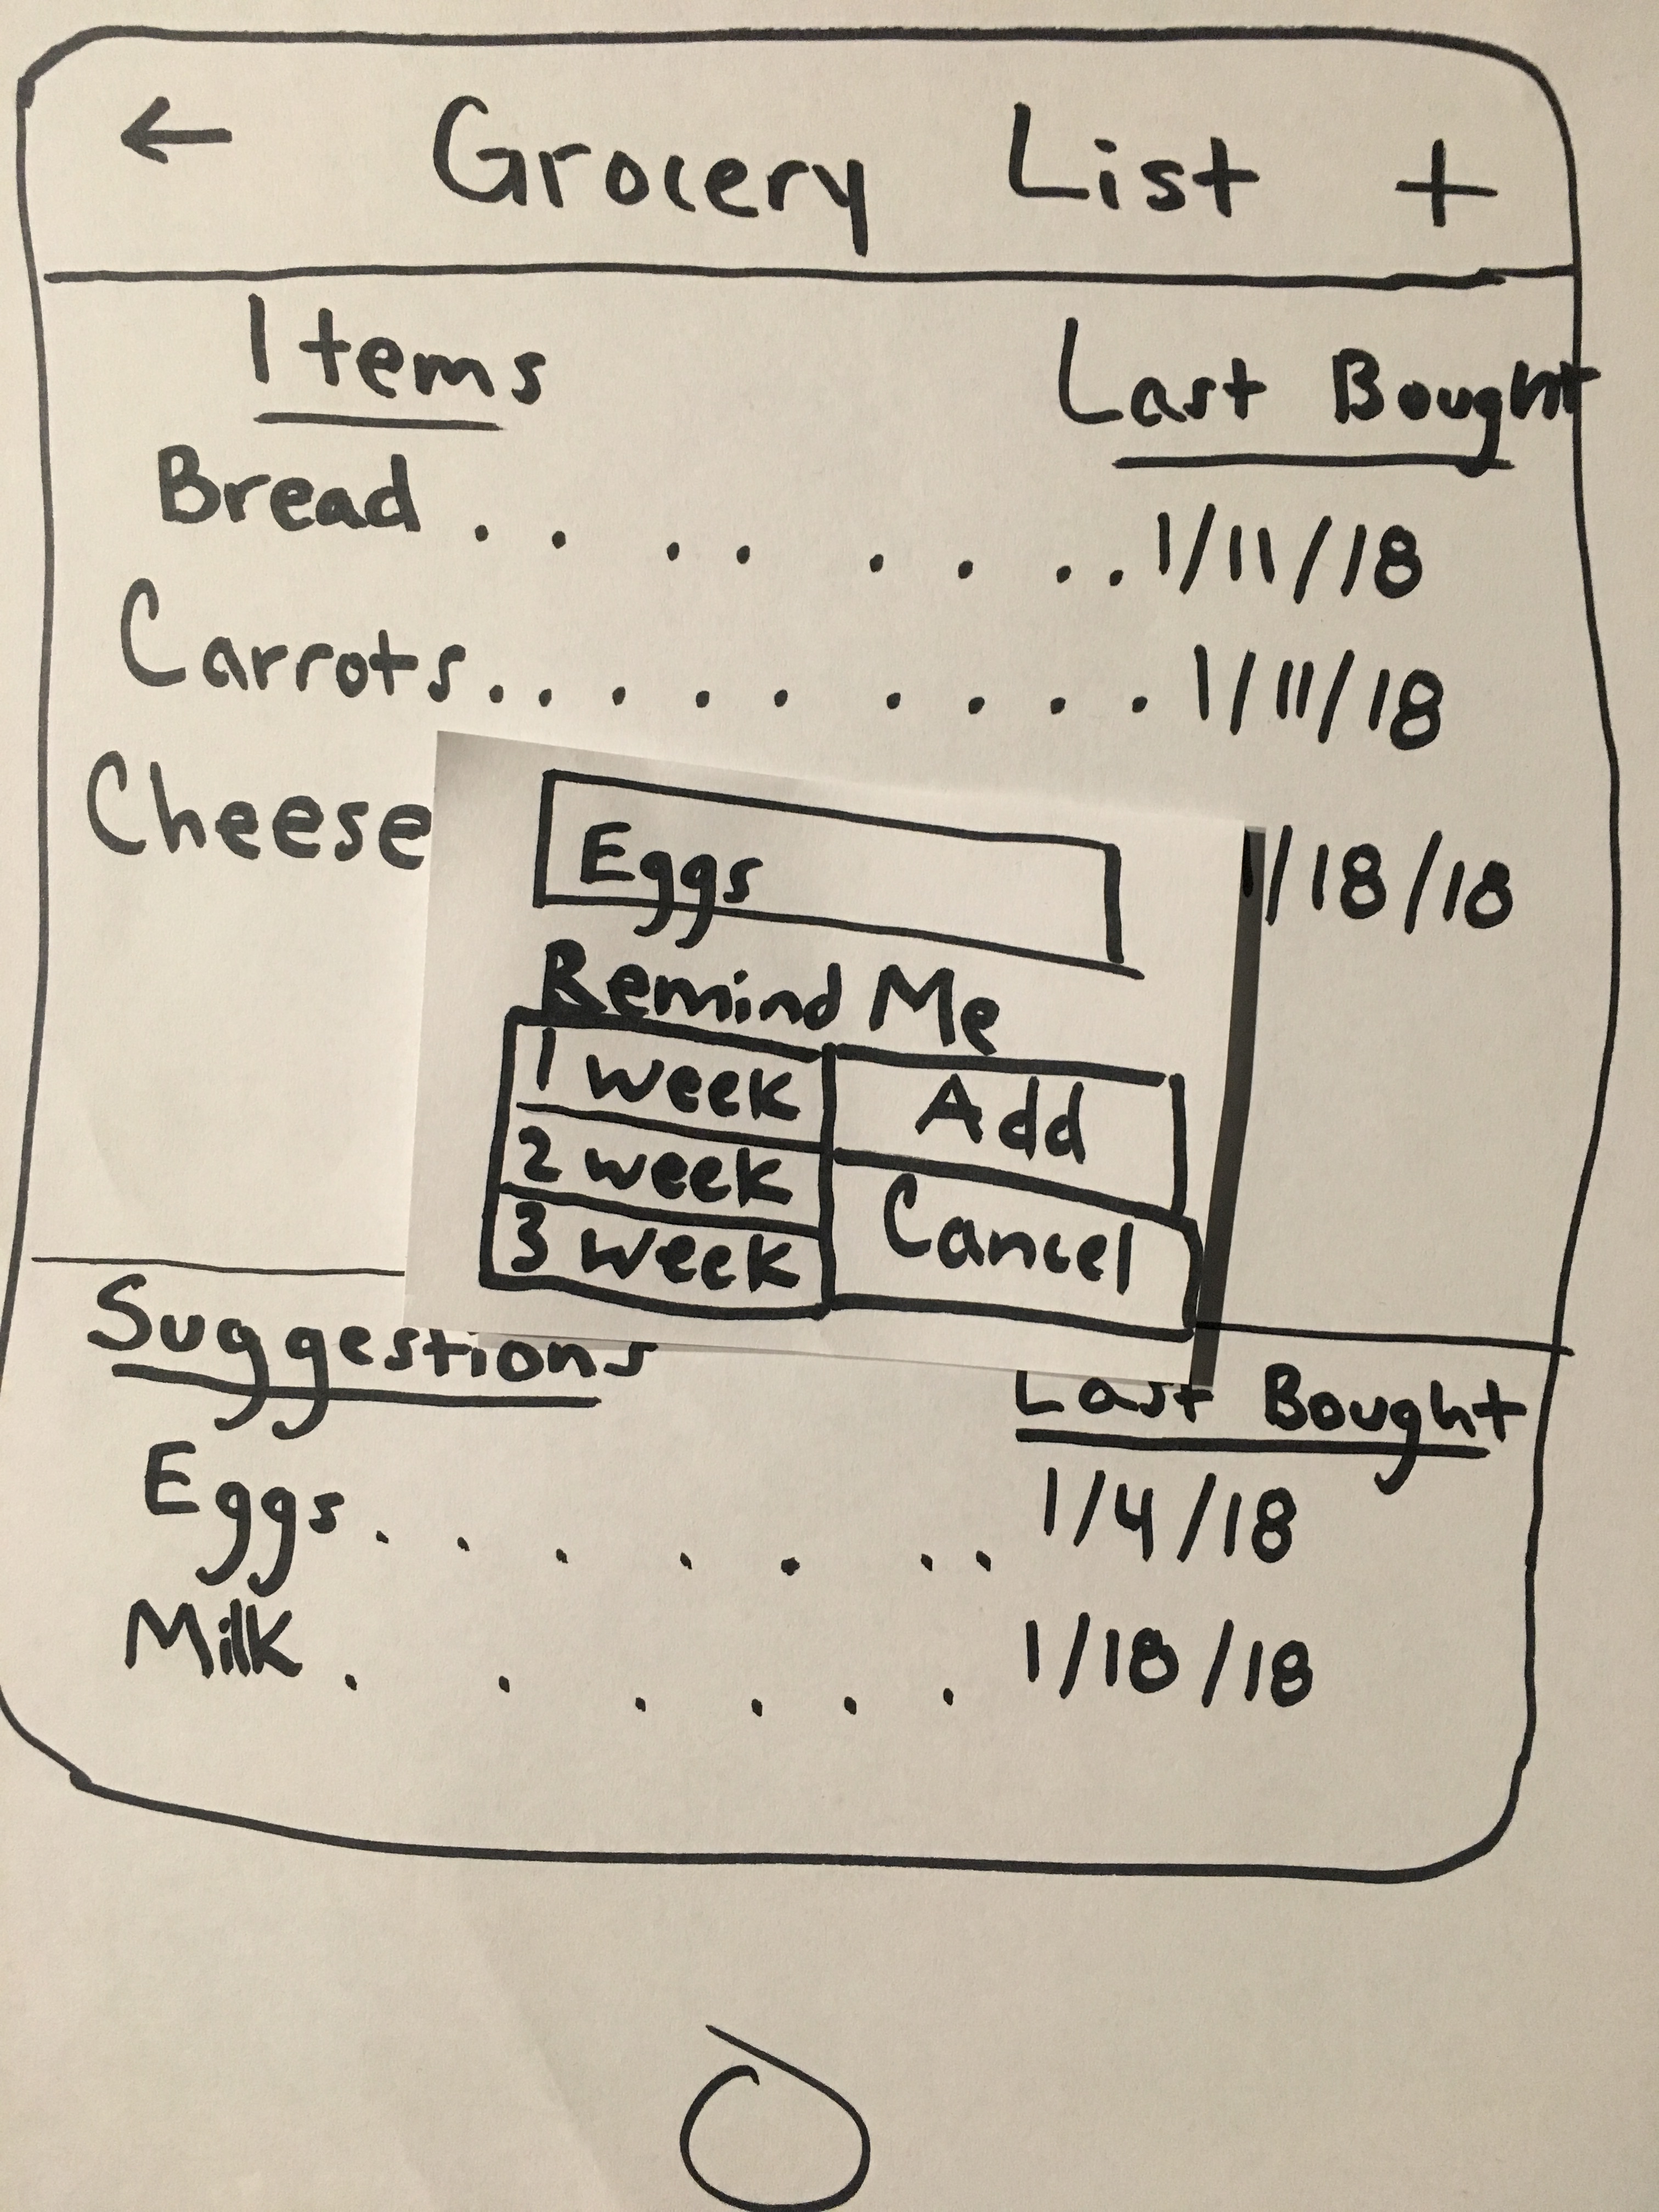 ← Grocery List +
Items Last Bought
Bread . . . . . . . . 1/11/18
Carrots . . . . . . . . . 1/11/18
Cheese 1/18/18
Eggs
Remind Me
1 week Add
2 week
3 week Cancel
Suggestions Last Bought
Eggs . . . . . . . 1/4/18
Milk . . . . . . 1/18/18